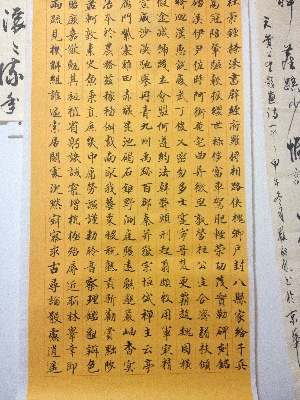 杜稿鍾隸漆書壁經府羅將相路俠槐卿戶封八縣家給千兵
高冠陪輦驅轂振纓世祿侈富車駕肥輕策功茂實勒碑刻銘
磻溪伊尹佐時阿衡奄宅曲阜微旦孰營桓公匡合濟弱扶傾
綺迴漢惠說感武丁俊乂密勿多士寔寧晉楚更霸趙魏困橫
假途滅虢踐土會盟何遵約法韓弊煩刑起翦頗牧用軍最精
宣威沙漠馳譽丹青九州禹跡百郡秦并嶽宗恒岱禪主云亭
雁門紫塞雞田赤城昆池碣石鉅野洞庭曠遠綿邈巖岫杳冥
治本於農務茲稼穡俶載南畝我藝黍稷稅熟貢新勸賞黜陟
孟軻敦素史魚秉直庶幾中庸勞謙謹敕聆音察理鑑貌辨色
貽厥嘉猷勉其祗植省躬譏誡寵增抗極殆辱近恥林皋幸即
兩疏見機解組誰逼索居閒處沉默寂寥求古尋論散慮逍遙